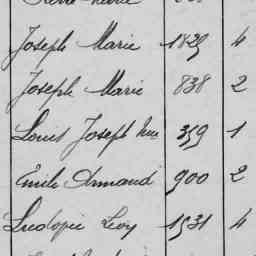 Joseph Marie 1829 4
Joseph Marie 838 2
Louis Joseph 359 1
Emile Armand 900 2
Ludovic Leoy 1531 4